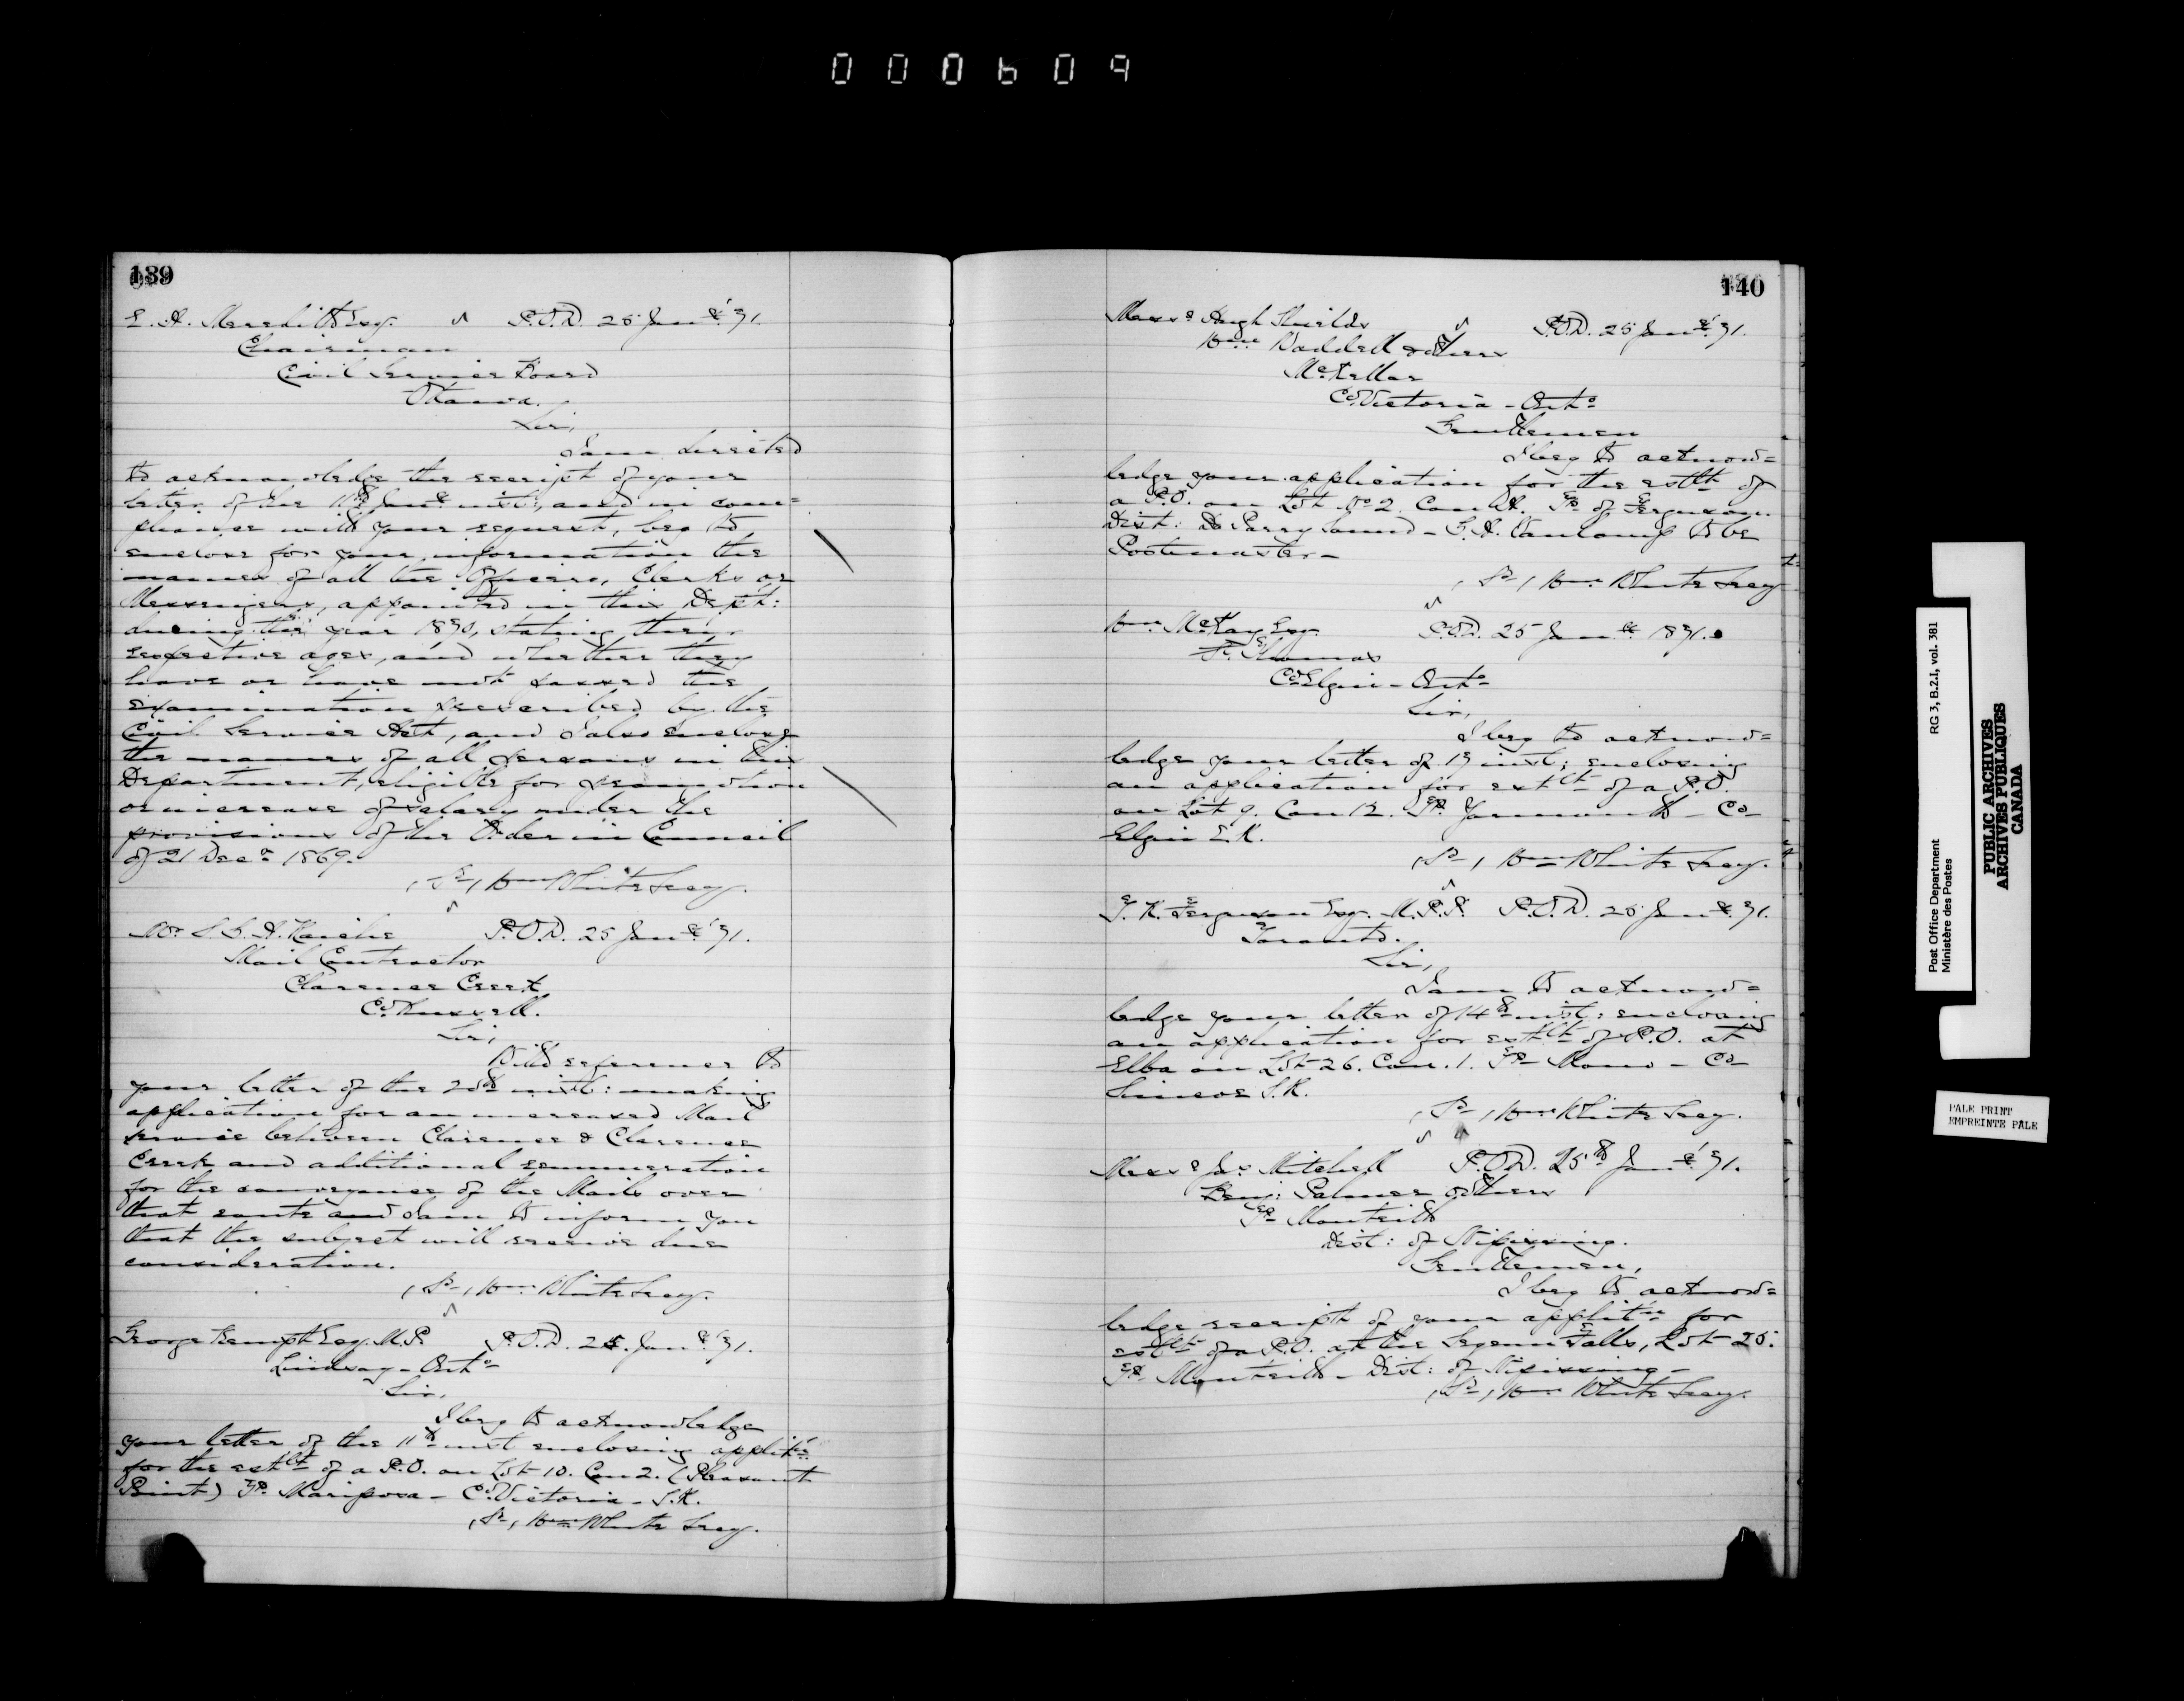 000609
139
E. A. Meredith Esq. P.O.D. 25 Jany '71.
Chairman
Civil Service Board
Ottawa.
Sir,
I am directed
to acknowledge the receipt of your
letter of the 11th Jany inst: and in com=
pliance with your request, beg to
enclose for your information the
names of all the Officers, Clerks or
Messengers, appointed in this Dept:
during the year 1870, stating their
respective ages, and whether they
have or have not passed the
examination prescribed by the
Civil Service Act, and I also enclose
the names of all persons in this
Department, eligible for promotion
or increase of salary under the
provisions of the Order in Council
of 21 Decr 1869.
Wm White Secy.
Mr P.O.D. 25 Jany '71.
Mail Contractor
Clarence Creek
Co Russell.
Sir,
With reference to
your letter of the 20th inst: making
application for an increased Mail
service between Clarence & Clarence
Creek and additional remuneration
for the conveyance of the Mails over
that route and I am to inform you
that the subject will receive due
consideration.
Wm White Secy.
George Kempt Esq. M.P. P.O.D. 25 Jany '71.
Lindsay - Onto
Sir,
I beg to acknowledge
your letter of the 11th inst enclosing applitn
for the estlt of a P.O. on Lot 10. Con 2. (Pleasant
Point) Tp. Mariposa - Co. Victoria - S.R.
Wm White Secy.
140
Messrs Hugh Shields P.O.D. 25 Jany '71.
Wm Waddell & others
McKellar
Co Victoria - Onto
Gentlemen
I beg to acknow=
ledge your application for the estlt of
a P.O. on Lot No 2. Con A. Tp of Ferguson
Dist: Parry Sound - to be
Postmaster -
Wm White Secy
Wm McKay Esq. P.O.D. 25 Jany 1871.
St Thomas
Co Elgin - Onto
Sir,
I beg to acknow=
ledge your letter of 17 inst; enclosing
an application for estlt of a P.O.
on Lot 9. Con 12. Tp. Yarmouth - Co
Elgin E.R.
Wm White Secy.
T. R. Ferguson Esq. M.P.P. P.O.D. 25 Jany '71.
Toronto.
Sir,
I am to acknow=
ledge your letter of 14th inst: enclosing
an application for estlt of P.O. at
Elba on Lot 26. Con. 1. Tp Mono - Co
Simcoe S.R.
Wm White Secy.
Messrs Jas Mitchell P.O.D. 25th Jany '71.
Benj: Palmer & others
Tp Monteith
Dist: of Nipissing.
Gentlemen,
I beg to acknow=
ledge receipt of your applitn for
estlt of a P.O. at the Falls, Lot 25.
Tp Monteith - Dist: of Nipissing -
Wm White Secy.
Post Office Department RG 3, B.2.I, vol. 381
Ministère des Postes
PUBLIC ARCHIVES
ARCHIVES PUBLIQUES
CANADA
PALE PRINT
EMPREINTE PÂLE